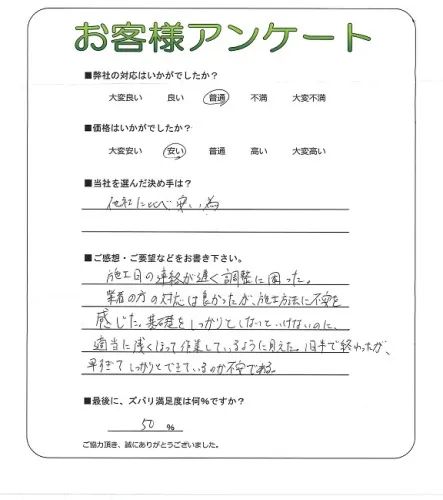 お客様アンケート
■弊社の対応はいかがでしたか？
大変良い 良い 普通 不満 大変不満
■価格はいかがでしたか？
大変安い 安い 普通 高い 大変高い
■当社を選んだ決め手は？
他社に比べ安い為
■ご感想・ご要望などをお書き下さい。
施工日の連絡が遅く調整に困った。
業者の方の対応は良かったが、施工方法に不安を
感じた。基礎をしっかりとしないといけないのに、
適当に浅くほって作業しているように見えた。1日半で終わったが、
早すぎてしっかりとできているのか不安である。
■最後に、ズバリ満足度は何%ですか？
50 %
ご協力頂き、誠にありがとうございました。